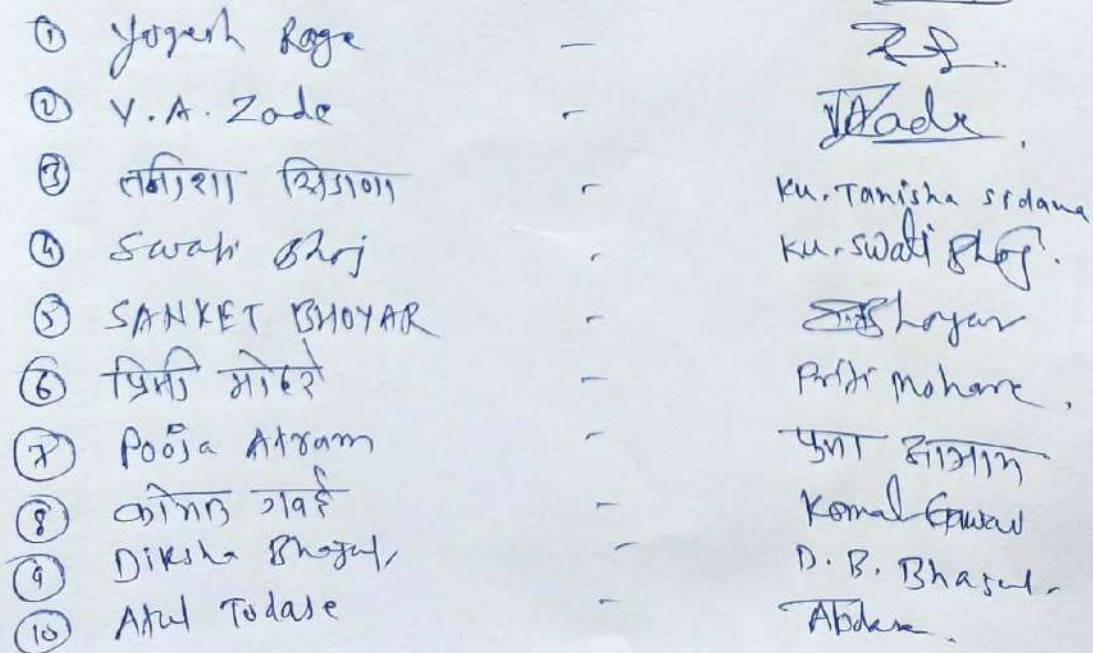 ① Yogesh Rage -
② V.A. Zade - VAZade
③ तनिशा सिडाणा - Ku. Tanisha Sidana
④ Swati Bhoj - Ku. Swati Bhoj.
⑤ SANKET BHOYAR - S.Bhoyar
⑥ प्रिती मोहरे - Priti Mohare,
⑦ Pooja Atram - पुजा आत्राम
⑧ कोमल गवई - Komal Gawai
⑨ Diksha Bhagat, - D. B. Bhagat.
⑩ Atul Todase -